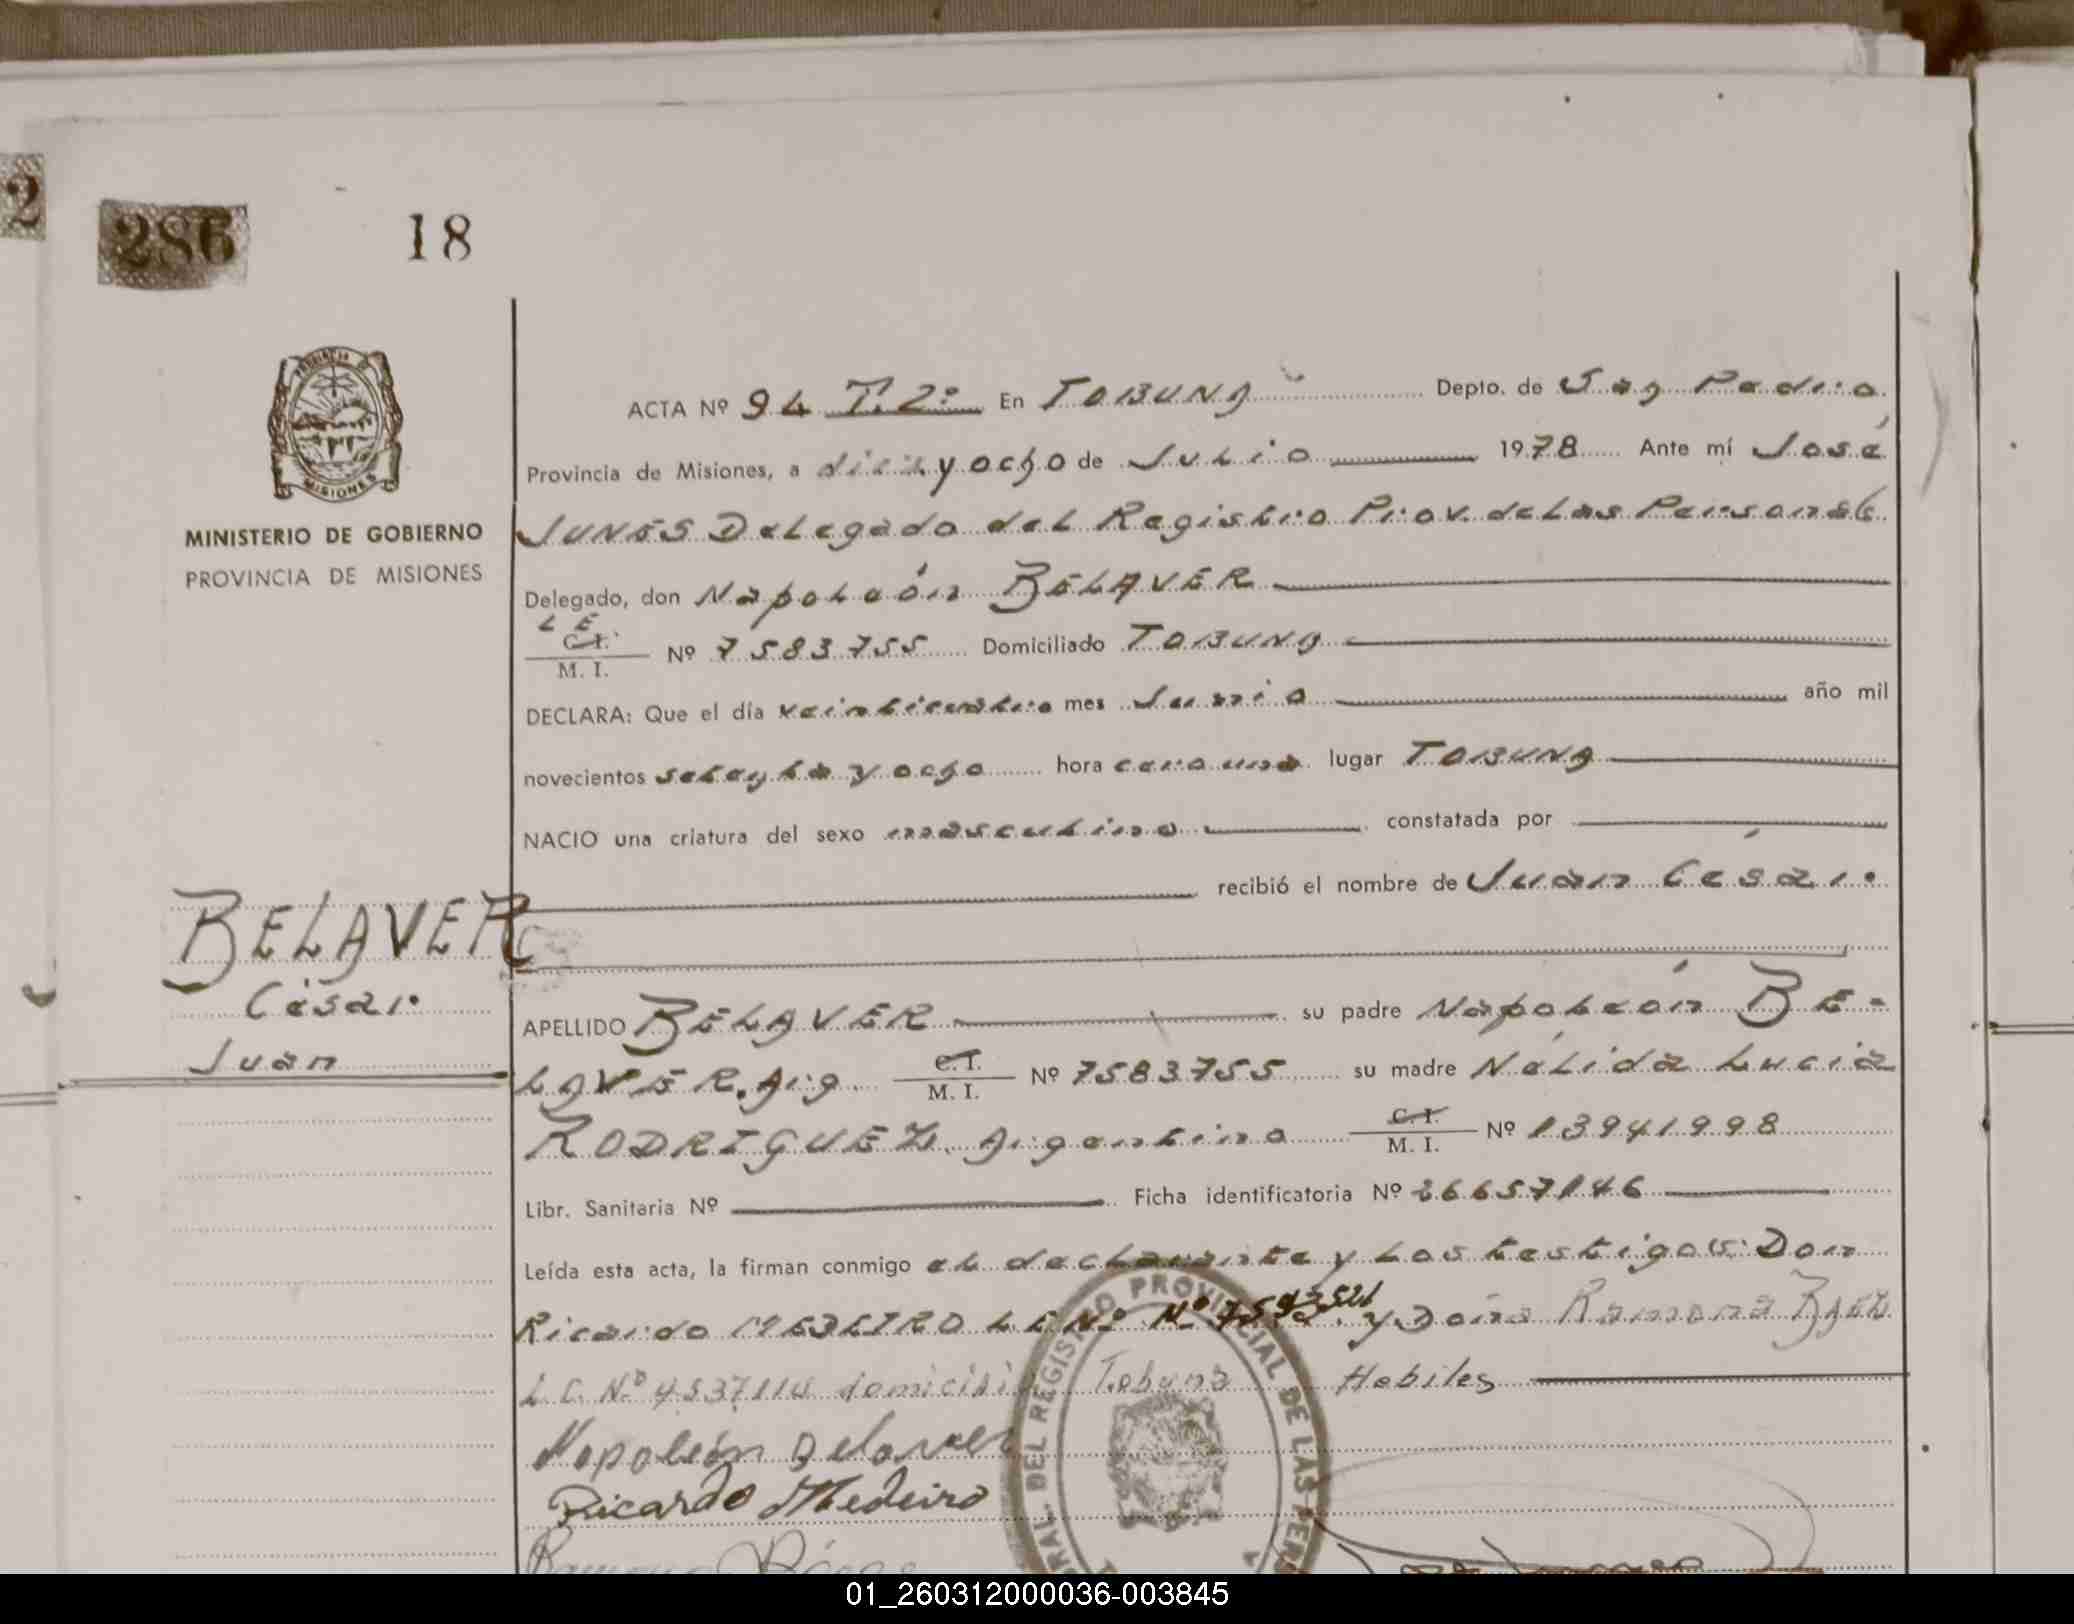 2
286 18
PROVINCIA
MISIONES
MINISTERIO DE GOBIERNO
PROVINCIA DE MISIONES
BELAVER
César
Juan
ACTA Nº 94 T. 2º En TOBUNA Depto. de San Pedro
Provincia de Misiones, a diez y ocho de Julio 1978 Ante mí José
JUNES Delegado del Registro Prov. de las Personas
Delegado, don Napoleón BELAVER
L E
C.I.
M. I. Nº 7583755 Domiciliado TOBUNA
DECLARA: Que el día veinticuatro mes Junio año mil
novecientos setenta y ocho hora cero una lugar TOBUNA
NACIO una criatura del sexo masculino constatada por
recibió el nombre de Juan César
APELLIDO BELAVER su padre Napoleón BE-
LAVER. Arg C.I. M. I. Nº 7583755 su madre Nélida Lucia
RODRIGUEZ. Argentina C.I. M. I. Nº 13941998
Libr. Sanitaria Nº Ficha identificatoria Nº 26657146
Leída esta acta, la firman conmigo el declarante y los testigos: Don
Ricardo L E Nº Nº y Doña Ramona BAEZ
L. C. Nº 4537114 Tobuna Habiles
Napoleón Belaver
Ricardo Medeiro
DEL REGISTRO PROVINCIAL DE LAS
01_260312000036-003845